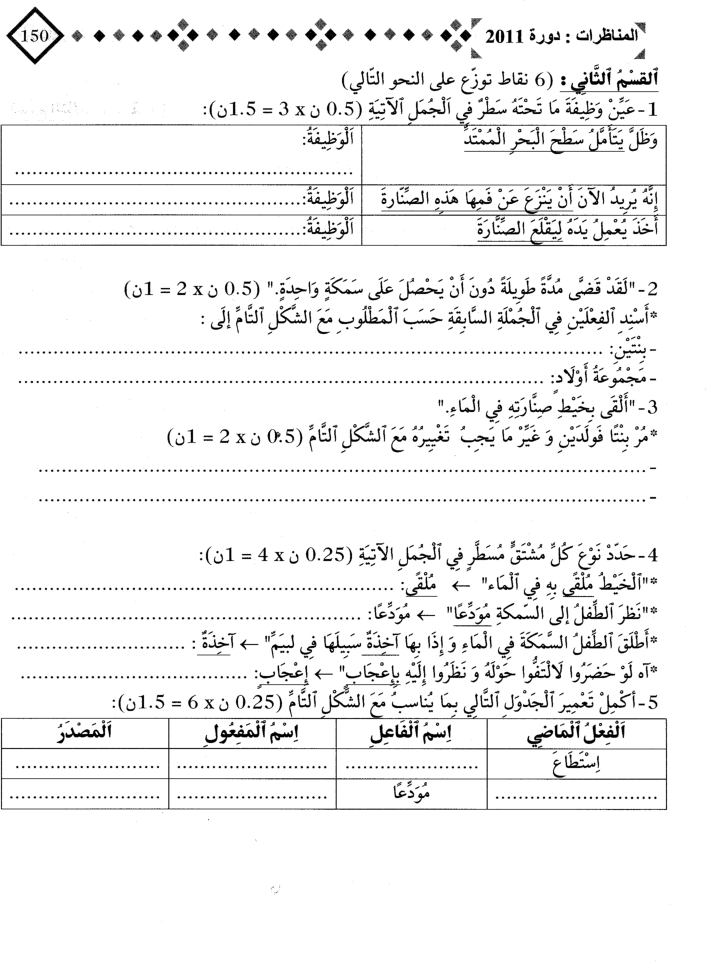 المناظرات : دورة 2011
150
اَلقسْمُ ٱلثَّانِي : (6 نقاط توزّع على النحو التّالي)
1-عَيِّنْ وَظِيفَةَ مَا تَحْتَهُ سَطْرٌ فِي اَلْجُمَلِ ٱلآتِيَةِ (0.5 ن x 3 = 1.5ن):
وَظَلَّ يَتَأَمَّلُ سَطْحَ الْبَحْرِ الْمُمْتَدِّ
اَلْوَظِيفَةُ:
........................................................
إِنَّهُ يُرِيدُ الآنَ أَنْ يَنْزَعَ عَنْ فَمِهَا هَذِهِ الصِّنَّارةَ
اَلْوَظِيفَةُ:..................................................
أَخَذَ يُعْمِلُ يَدَهُ لِيَقْلَعَ الصِّنَّارَةَ
اَلْوَظِيفَةُ:..................................................
2-"لَقَدْ قَضَّى مُدَّةً طَوِيلَةً دُونَ أَنْ يَحْصُلَ عَلَى سَمَكَةٍ وَاحِدَةٍ." (0.5 ن x 2 = 1ن)
*أَسْنِدِ الفِعْلَيْنِ فِي ٱلْجُمْلَةِ السَّابِقَةِ حَسَبَ ٱلْمَطْلُوبِ مَعَ الشَّكْلِ ٱلتَّامِّ إلَى :
-بِنْتَيْنِ: ..................................................................................
-مَجْمُوعَةُ أَوْلَادٍ: ..........................................................................
3-"أَلْقَى بِخَيْطِ صِنَّارَتِهِ فِي الْمَاءِ."
*مُرْ بِنْتًا فَولَدَيْنِ وَ غَيِّرْ مَا يَجِبُ تَغْيِيرُهُ مَعَ ٱلشَّكْلِ ٱلتَّامِّ (0.5 ن x 2 = 1ن)
- ..........................................................................................
- ..........................................................................................
4-حَدِّدْ نَوْعَ كُلِّ مُشْتَقٍّ مُسَطَّرٍ فِي اَلْجُمَلِ الآتِيَةِ (0.25 ن x 4 = 1ن):
*"اَلْخَيْطُ مُلْقًى بِهِ فِي الْمَاء" ← مُلْقًى: ......................................................
*"نَظَرَ الطِّفلُ إلى السّمكةِ مُوَدِّعًا" ← مُوَدِّعًا: ..................................................
*أَطْلَقَ الطِّفلُ السَّمَكَةَ في الْمَاءِ وَ إِذَا بِهَا آخِذَةٌ سَبِيلَهَا فِي ليَمِّ" ← آخِذَةٌ : ........................
*آه لَوْ حَضَرُوا لَالْتَفُّوا حَوْلَهُ وَ نَظَرُوا إِلَيْهِ بِإِعْجَاب" ← إِعْجَابٍ: ........................
5-أَكْمِلْ تَعْمِيرَ ٱلْجَدْوَلِ التَّالِي بِمَا يُنَاسبُ مَعَ الشَّكْلِ ٱلتَّامِّ (0.25 ن x 6 = 1.5ن):
اَلْفِعْلُ ٱلْمَاضِي
اِسْمُ ٱلْفَاعِلِ
اِسْمُ ٱلْمَفْعُولِ
اَلْمَصْدَرُ
اِسْتَطَاعَ
......................
......................
......................
..........................
مُوَدِّعًا
......................
......................